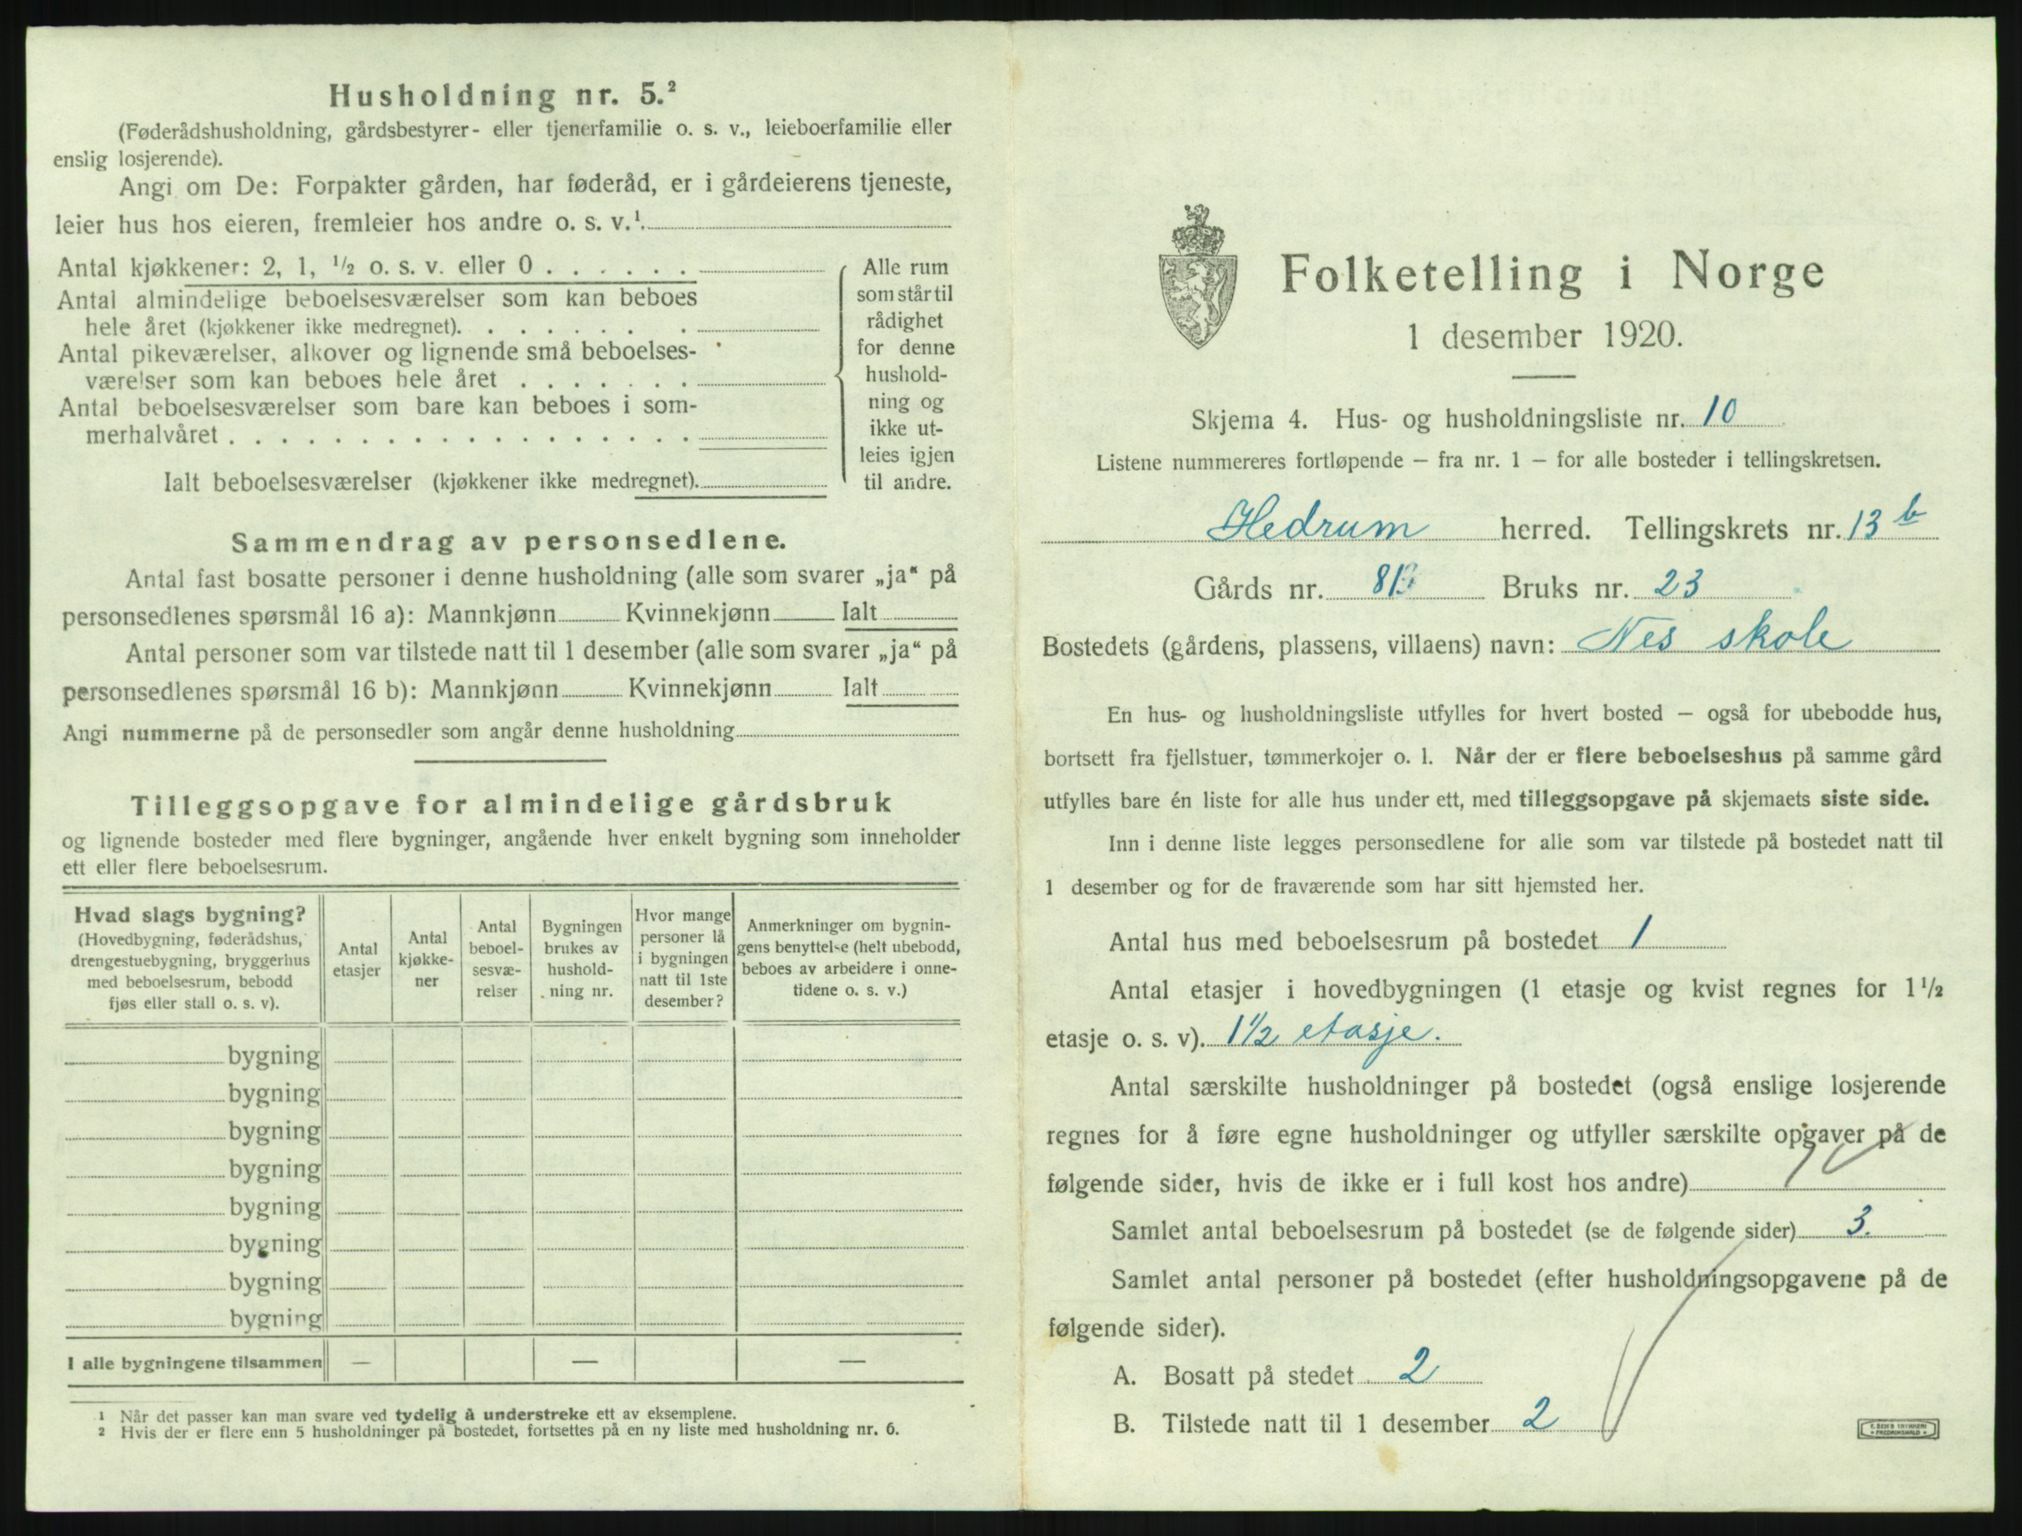 Husholdning nr. 5.²
(Føderådshusholdning, gårdsbestyrer- eller tjenerfamilie o. s. v., leieboerfamilie eller
enslig losjerende).
Angi om De: Forpakter gården, har føderåd, er i gårdeierens tjeneste,
leier hus hos eieren, fremleier hos andre o. s. v.¹
Antal kjøkkener: 2, 1, ½ o. s. v. eller 0 . . . . . .
Antal almindelige beboelsesværelser som kan beboes
hele året (kjøkkener ikke medregnet). . . . . . . .
Antal pikeværelser, alkover og lignende små beboelses-
værelser som kan beboes hele året . . . . . . .
Antal beboelsesværelser som bare kan beboes i som-
merhalvåret . . . . . . . . . . . . . . . . . .
Ialt beboelsesværelser (kjøkkener ikke medregnet).
Alle rum
som står til
rådighet
for denne
hushold-
ning og
ikke ut-
leies igjen
til andre.
Sammendrag av personsedlene.
Antal fast bosatte personer i denne husholdning (alle som svarer „ja“ på
personsedlenes spørsmål 16 a): Mannkjønn Kvinnekjønn Ialt
Antal personer som var tilstede natt til 1 desember (alle som svarer „ja“ på
personsedlenes spørsmål 16 b): Mannkjønn Kvinnekjønn Ialt
Angi nummerne på de personsedler som angår denne husholdning
Tilleggsopgave for almindelige gårdsbruk
og lignende bosteder med flere bygninger, angående hver enkelt bygning som inneholder
ett eller flere beboelsesrum.
Hvad slags bygning?
(Hovedbygning, føderådshus,
drengestuebygning, bryggerhus
med beboelsesrum, bebodd
fjøs eller stall o. s. v).
Antal
etasjer
Antal
kjøkke-
ner
Antal
beboel-
sesvæ-
relser
Bygningen
brukes av
hushold-
ning nr.
Hvor mange
personer lå
i bygningen
natt til 1ste
desember?
Anmerkninger om bygnin-
gens benyttelse (helt ubebodd,
beboes av arbeidere i onne-
tidene o. s. v.)
bygning
bygning
bygning
bygning
bygning
bygning
bygning
bygning
I alle bygningene tilsammen — — —
¹ Når det passer kan man svare ved tydelig å understreke ett av eksemplene.
² Hvis der er flere enn 5 husholdninger på bostedet, fortsettes på en ny liste med husholdning nr. 6.
Folketelling i Norge
1 desember 1920.
Skjema 4. Hus- og husholdningsliste nr. 10
Listene nummereres fortløpende – fra nr. 1 – for alle bosteder i tellingskretsen.
Hedrum herred. Tellingskrets nr. 13 b
Gårds nr. Bruks nr. 23
Bostedets (gårdens, plassens, villaens) navn: Nes skole
En hus- og husholdningsliste utfylles for hvert bosted – også for ubebodde hus,
bortsett fra fjellstuer, tømmerkojer o. l. Når der er flere beboelseshus på samme gård
utfylles bare én liste for alle hus under ett, med tilleggsopgave på skjemaets siste side.
Inn i denne liste legges personsedlene for alle som var tilstede på bostedet natt til
1 desember og for de fraværende som har sitt hjemsted her.
Antal hus med beboelsesrum på bostedet 1
Antal etasjer i hovedbygningen (1 etasje og kvist regnes for 1½
etasje o. s. v). 1½ etasje.
Antal særskilte husholdninger på bostedet (også enslige losjerende
regnes for å føre egne husholdninger og utfyller særskilte opgaver på de
følgende sider, hvis de ikke er i full kost hos andre)
Samlet antal beboelsesrum på bostedet (se de følgende sider) 3.
Samlet antal personer på bostedet (efter husholdningsopgavene på de
følgende sider).
A. Bosatt på stedet 2
B. Tilstede natt til 1 desember 2